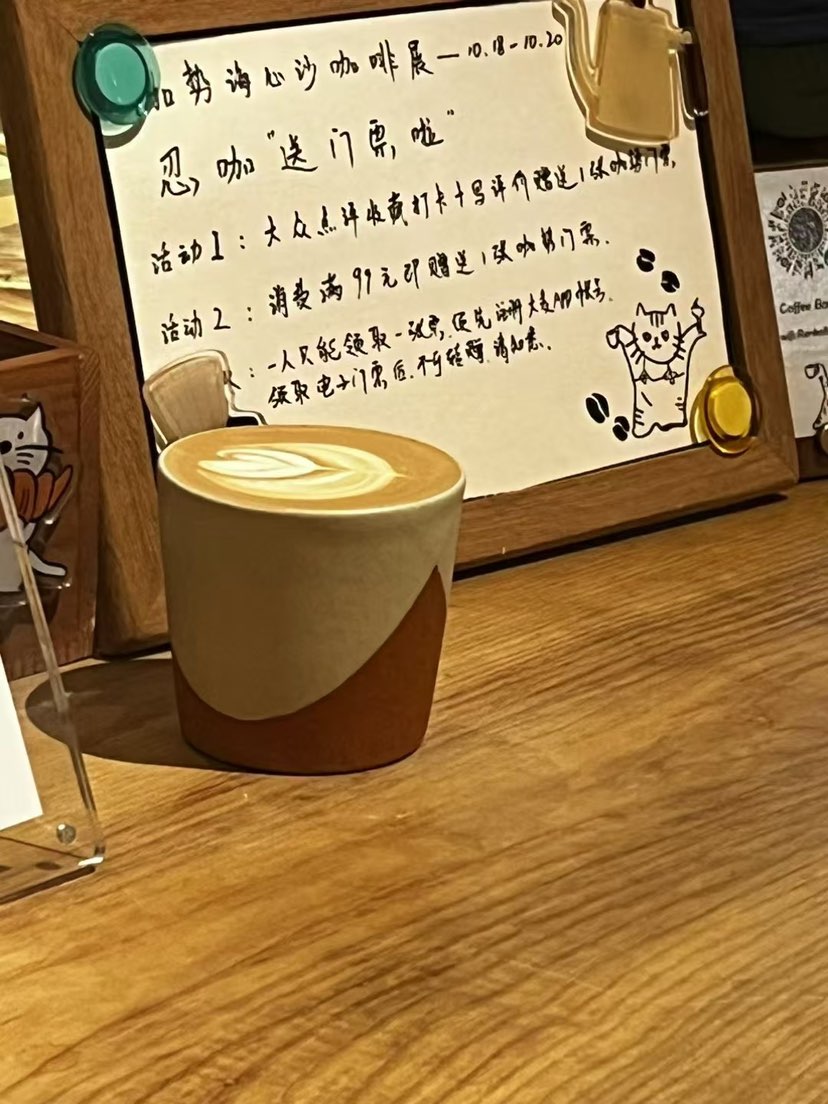 势海心沙咖啡展—10.18-10.20
忍咖"送门票啦"
活动1：大众点评收藏打卡+写评价赠送1张咖势门票.
活动2：消费满99元即赠送1张咖势门票.
：一人只能领取一张票,优先注册大麦APP帐号.
领取电子门票后.不可转赠.请知悉.
Coffee